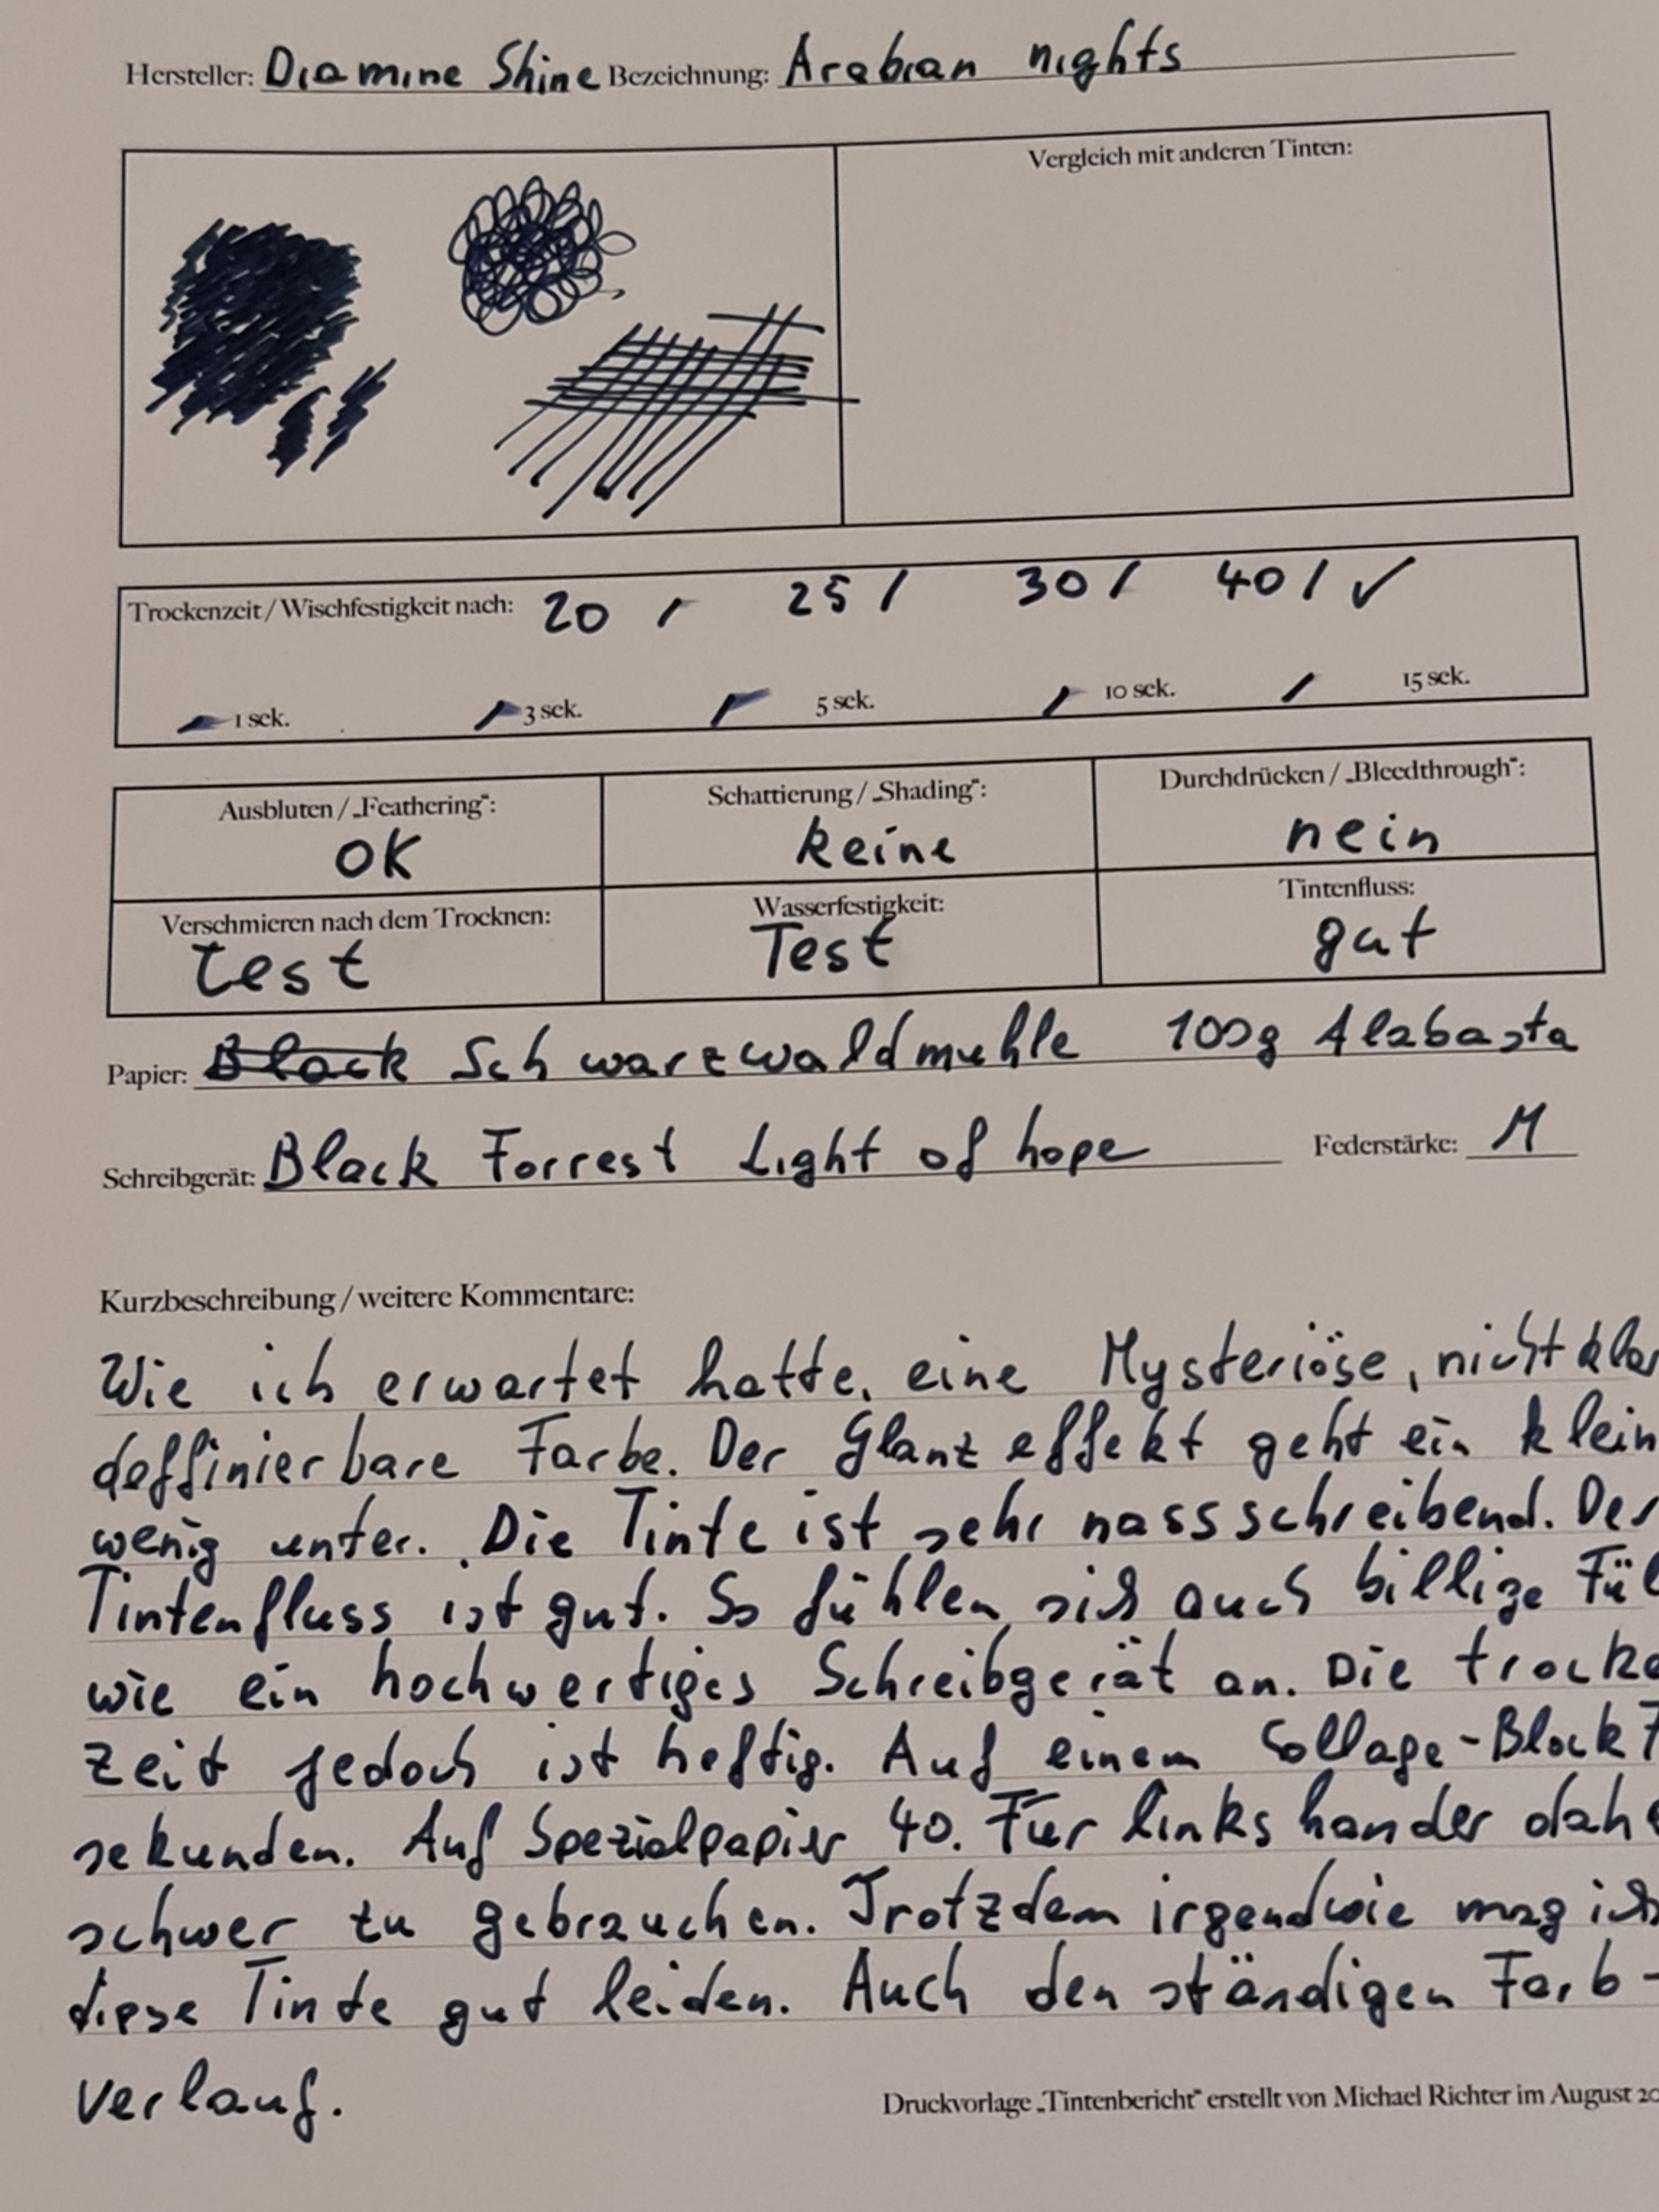 Hersteller: Diamine Shine Bezeichnung: Arabian nights
Vergleich mit anderen Tinten:
Trockenzeit / Wischfestigkeit nach: 20 / 25 / 30 / 40 / ✓
1 sek. 3 sek. 5 sek. 10 sek. 15 sek.
Ausbluten / „Feathering“: Schattierung / „Shading“: Durchdrücken / „Bleedthrough“:
OK keine nein
Verschmieren nach dem Trocknen: Wasserfestigkeit: Tintenfluss:
Test Test gut
Papier: Black Schwarzwaldmuhle 100g Alabasta
Schreibgerät: Black Forrest Light of hope Federstärke: M
Kurzbeschreibung / weitere Kommentare:
Wie ich erwartet hatte, eine Mysteriöse, nicht klar
deffinierbare Farbe. Der Glanzeffekt geht ein klein
wenig unter. Die Tinte ist sehr nassschreibend. Der
Tintenfluss ist gut. So fühlen sich auch billige Fül
wie ein hochwertiges Schreibgerät an. Die trocke
zeit jedoch ist heftig. Auf einem Collage-Block 7
sekunden. Auf Spezialpapier 40. Für linkshander dahe
schwer zu gebrauchen. Trotzdem irgendwie mag ich
diese Tinte gut leiden. Auch den ständigen Farb-
verlauf.
Druckvorlage „Tintenbericht“ erstellt von Michael Richter im August 20